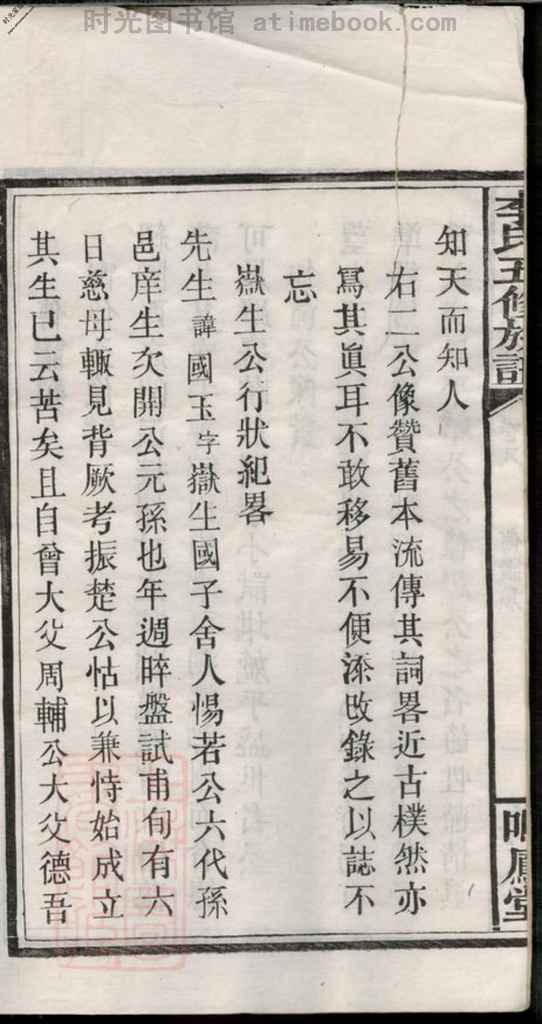 时光图书馆 atimebook.com
李氏五修族譜
鳴鳳堂
知天而知人
右二公像贊舊本流傳其詞畧近古樸然亦
寫其眞耳不敢移易不便添改錄之以誌不
忘
嶽生公行狀紀畧
先生諱國玉字嶽生國子舍人惕若公六代孫
邑庠生次開公元孫也年週晬盤試甫旬有六
日慈母輒見背厥考振楚公怙以兼恃始成立
其生已云苦矣且自曾大父周輔公大父德吾